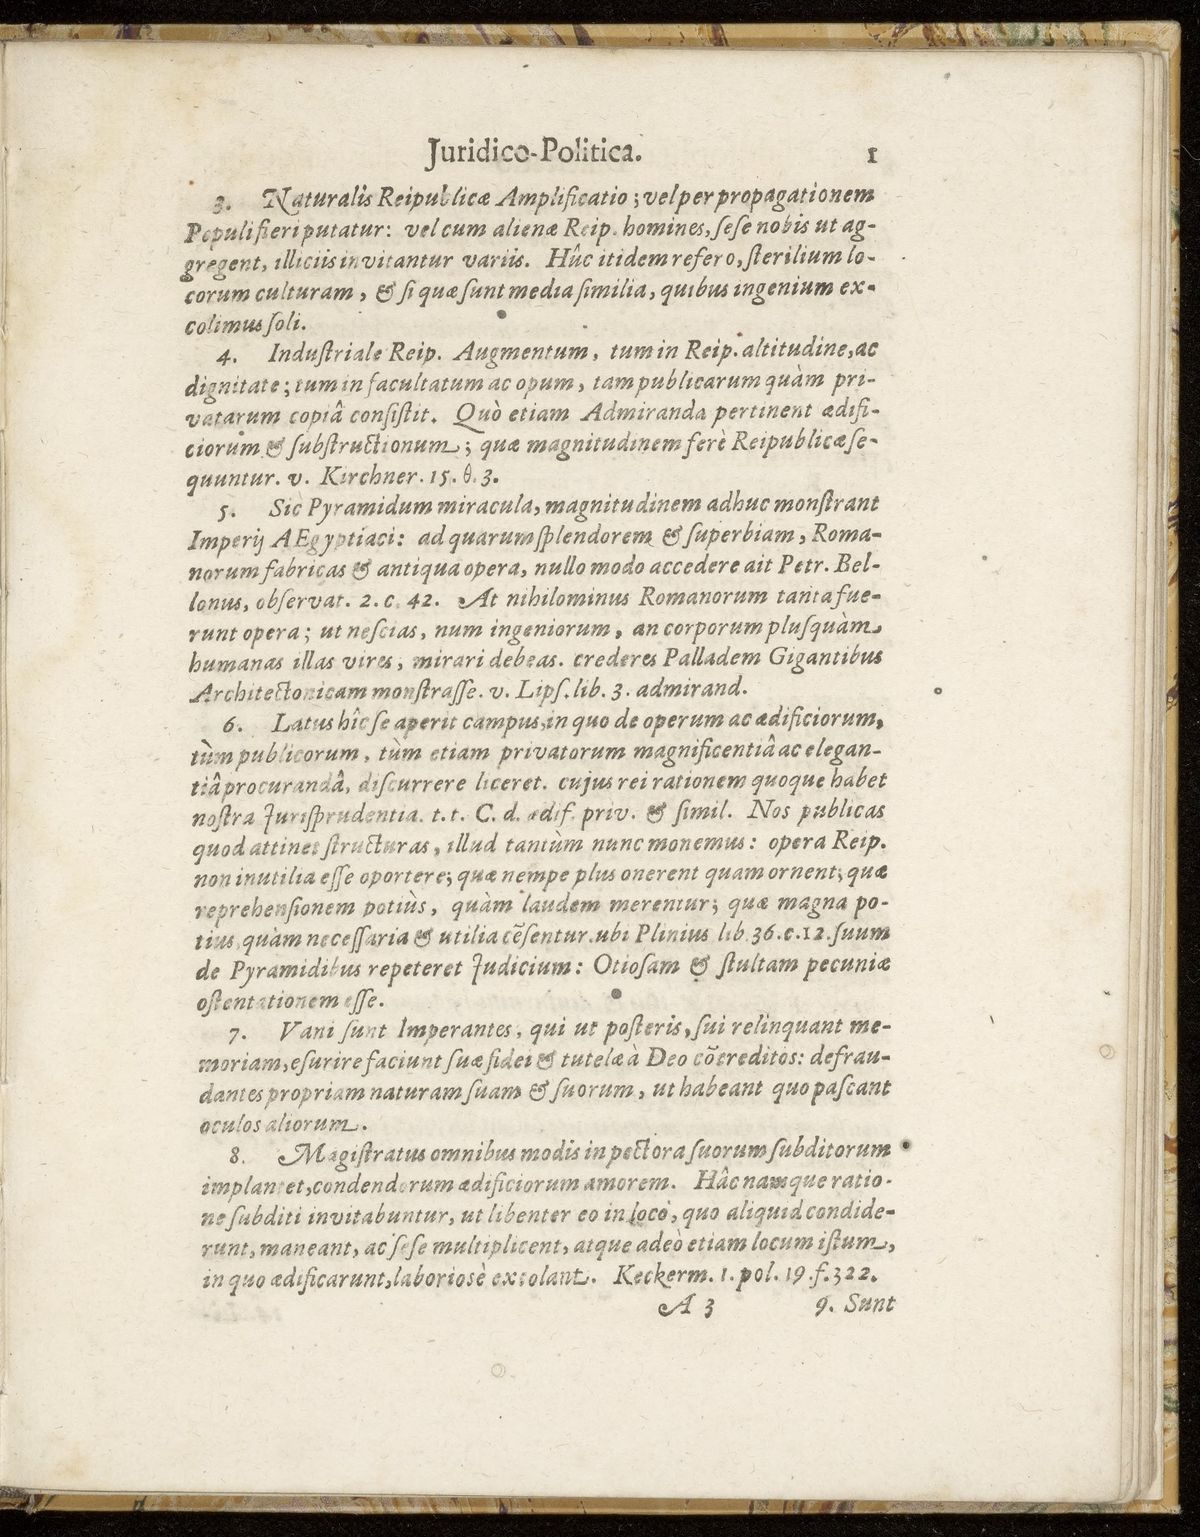 Juridico-Politica. 1
3. Naturalis Reipublicæ Amplificatio; vel per propagationem
Populi fieri putatur: vel cum alienæ Reip. homines, ſeſe nobis ut ag-
gregent, illiciis invitantur variis. Hûc itidem refero, ſterilium lo-
corum culturam, & ſi quæ ſunt media ſimilia, quibus ingenium ex-
colimus ſoli.
4. Induſtriale Reip. Augmentum, tum in Reip. altitudine, ac
dignitate; tum in facultatum ac opum, tam publicarum quàm pri-
vatarum copiâ conſiſtit. Quò etiam Admiranda pertinent ædifi-
ciorum & ſubſtructionum; quæ magnitudinem ferè Reipublicæ ſe-
quuntur. v. Kirchner. 15. θ. 3.
5. Sic Pyramidum miracula, magnitudinem adhuc monſtrant
Imperij AEgyptiaci: ad quarum ſplendorem & ſuperbiam, Roma-
norum fabricas & antiqua opera, nullo modo accedere ait Petr. Bel-
lonus, obſervat. 2. c. 42. At nihilominus Romanorum tanta fue-
runt opera; ut neſcias, num ingeniorum, an corporum pluſquàm
humanas illas vires, mirari debeas. crederes Palladem Gigantibus
Architectonicam monſtraſſe. v. Lipſ. lib. 3. admirand.
6. Latus hîc ſe aperit campus, in quo de operum ac ædificiorum,
tùm publicorum, tùm etiam privatorum magnificentiâ ac elegan-
tiâ procurandâ, diſcurrere liceret. cujus rei rationem quoque habet
noſtra Juriſprudentia. t. t. C. d. ædif. priv. & ſimil. Nos publicas
quod attinet ſtructuras, illud tantùm nunc monemus: opera Reip.
non inutilia eſſe oportere; quæ nempe plus onerent quam ornent; quæ
reprehenſionem potiùs, quàm laudem merentur; quæ magna po-
tius, quàm neceſſaria & utilia cẽſentur. ubi Plinius lib. 36. c. 12. ſuum
de Pyramidibus repeteret Judicium: Otioſam & ſtultam pecuniæ
oſtentationem eſſe.
7. Vani ſunt Imperantes, qui ut poſteris, ſui relinquant me-
moriam, eſurire faciunt ſuæ fidei & tutelæ à Deo cõcreditos: defrau-
dantes propriam naturam ſuam & ſuorum, ut habeant quo paſcant
oculos aliorum.
8. Magiſtratus omnibus modis in pectora ſuorum ſubditorum
implantet, condendorum ædificiorum amorem. Hâc namque ratio-
ne ſubditi invitabuntur, ut libenter eo in locò, quo aliquid condide-
runt, maneant, ac ſeſe multiplicent, atque adeò etiam locum iſtum,
in quo ædificarunt, laborioſè excolant. Keckerm. 1. pol. 19. f. 322.
A 3 9. Sunt